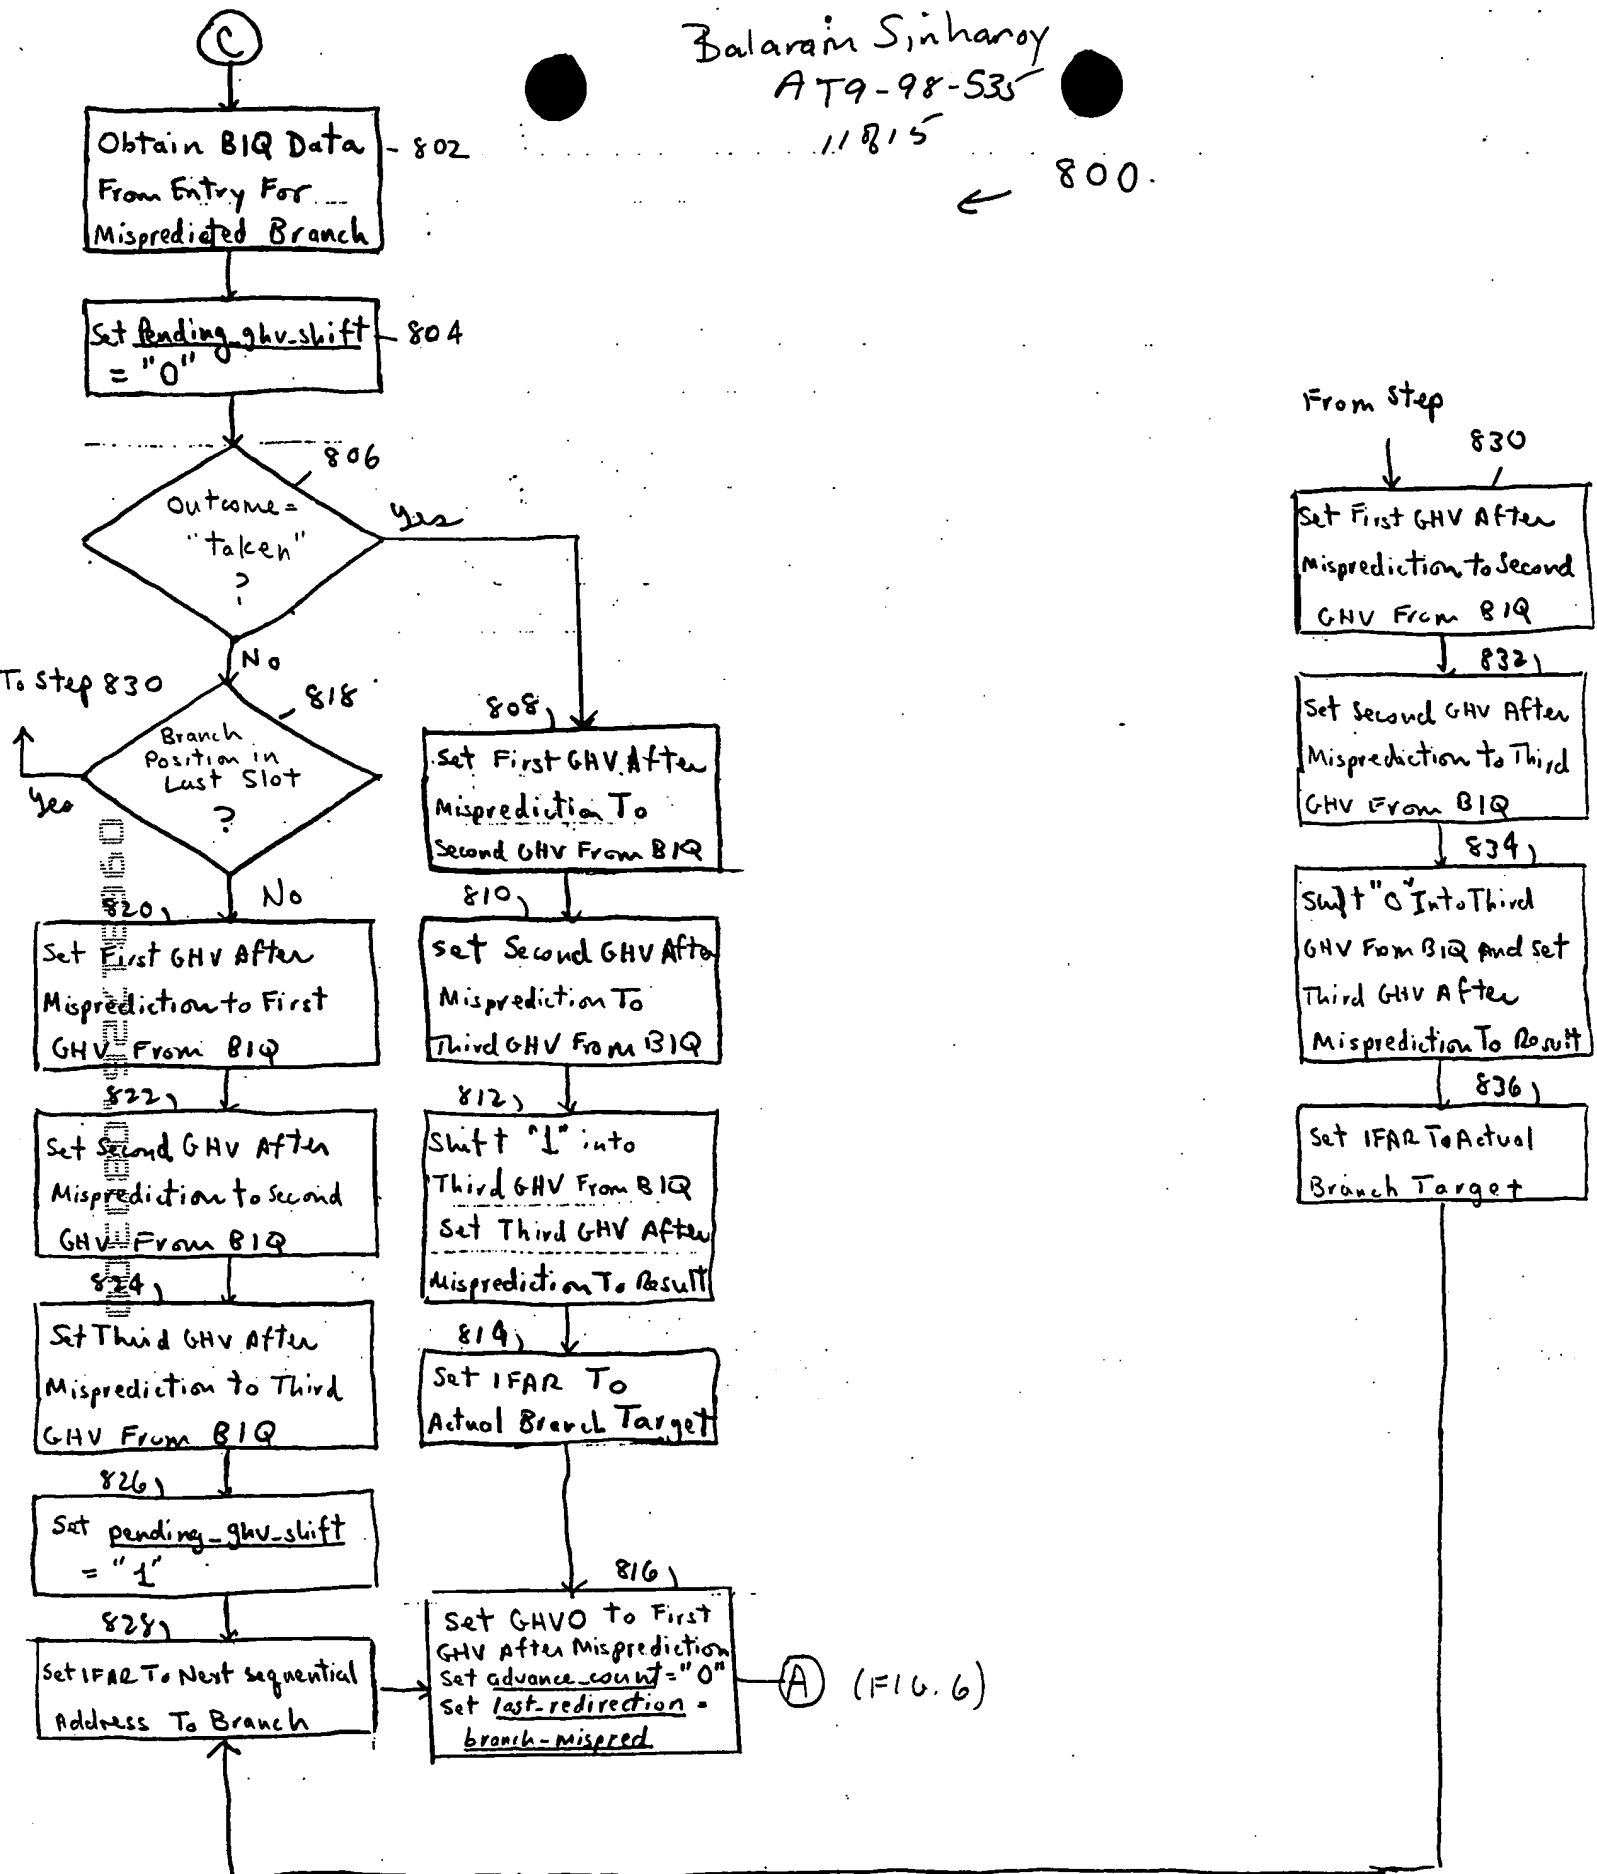 C
Balaram Sinharoy
AT9-98-535
800.
Obtain BIQ Data
From Entry For
Mispredicted Branch
802
Set Pending_ghv_shift
= "0"
804
806
Outcome =
"taken"
?
Yes
No
To Step 830
818
Branch
Position in
Last Slot
?
Yes
No
820
Set First GHV After
Misprediction to First
GHV From BIQ
822
Set Second GHV After
Misprediction to Second
GHV From BIQ
824
Set Third GHV After
Misprediction to Third
GHV From BIQ
826
Set pending_ghv_shift
= "1"
828
Set IFAR To Next sequential
Address To Branch
808
Set First GHV After
Misprediction To
Second GHV From BIQ
810
Set Second GHV After
Misprediction To
Third GHV From BIQ
812
Shift "1" into
Third GHV From BIQ
Set Third GHV After
Misprediction To Result
814
Set IFAR To
Actual Branch Target
816
Set GHV0 to First
GHV After Misprediction
Set advance_count = "0"
Set last-redirection =
branch-mispred
A (FIG. 6)
From Step
830
Set First GHV After
Misprediction to Second
GHV From BIQ
832
Set Second GHV After
Misprediction to Third
GHV From BIQ
834
Shift "0" Into Third
GHV From BIQ And set
Third GHV After
Misprediction To Result
836
Set IFAR To Actual
Branch Target